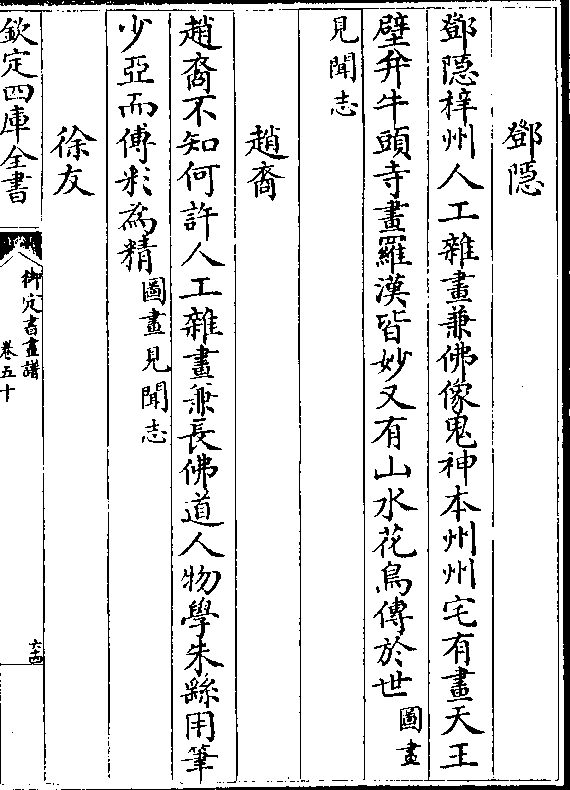 鄧隱
鄧隱梓州人工雜畫兼佛像鬼神本州州宅有畫天王
壁并牛頭寺畫羅漢皆妙又有山水花鳥傳於世圖畫
見聞志
趙裔
趙裔不知何許人工雜畫兼長佛道人物學朱繇用筆
少亞而傅彩為精圖畫見聞志
徐友
欽定四庫全書
御定書畫譜
卷五十
六四